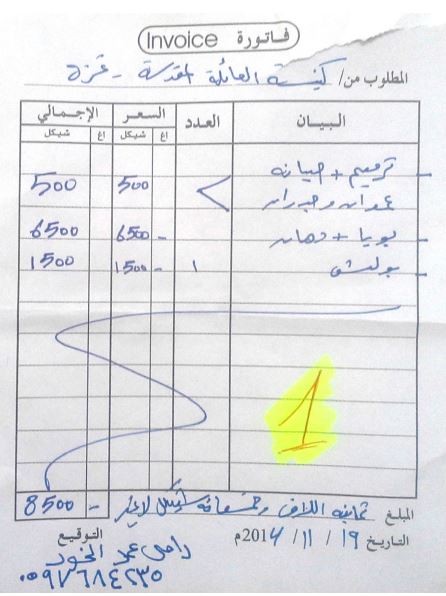 فاتورة Invoice
المطلوب من/ كنيسة العائلة المقدسة - غزة
البيان العدد السعر الإجمالي
اغ شيكل اغ شيكل
- ترميم + صيانة
جدران 500 500
- بويا + دهان 6500 - 6500
- بوليش 1 1500 - 1500
1
المبلغ ثمانية الاف وخمسمائة شيكل لاغير - 8500
التاريخ 19 / 11 / 2014م التوقيع
رامي عمر